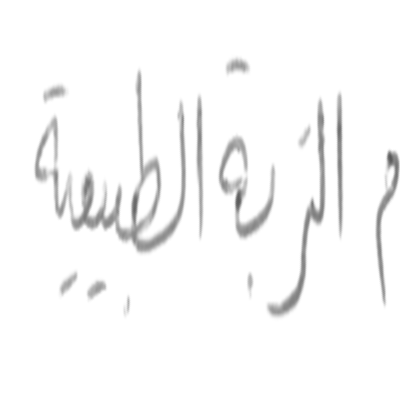 م التربة الطبيعية